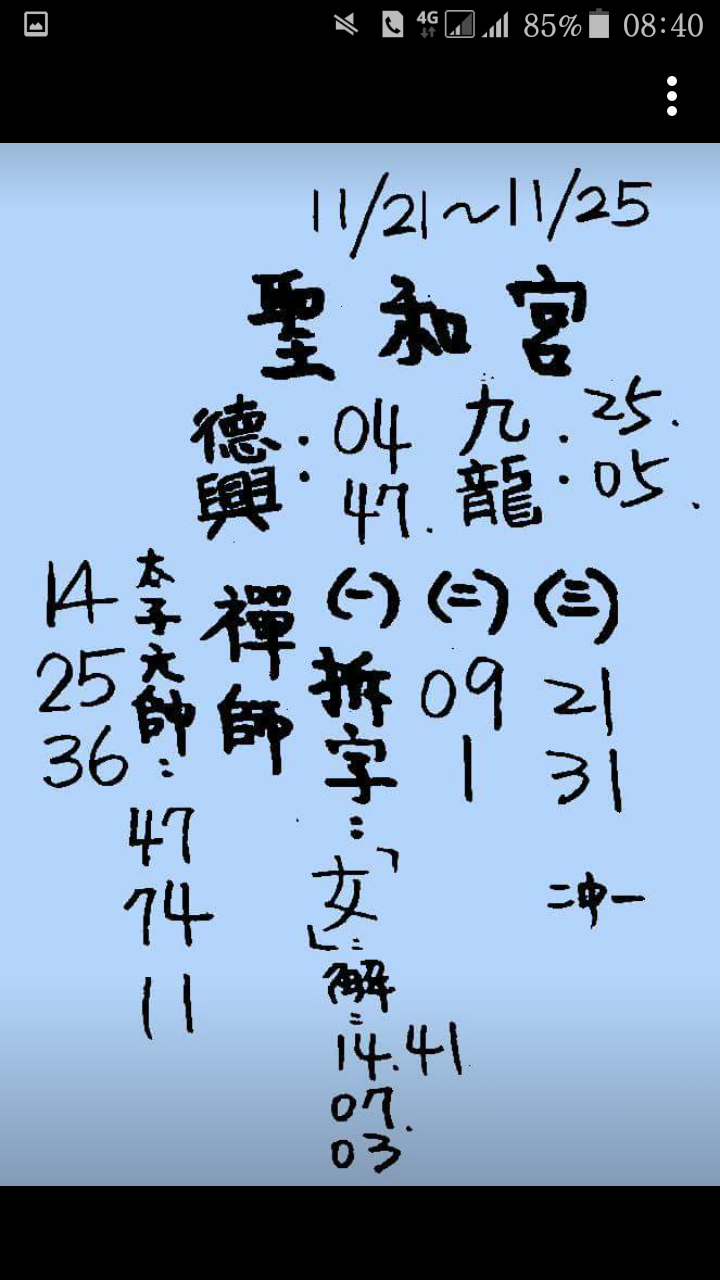 4G 85% 08:40
11/21～11/25
聖和宮
德興：04 47.
九龍：25. 05.
禪師
(一) 拆字：「女」：解：14.41 07. 03
(二) 09 1
(三) 21 31
二中一
太子元帥：
14
25
36
47
74
11